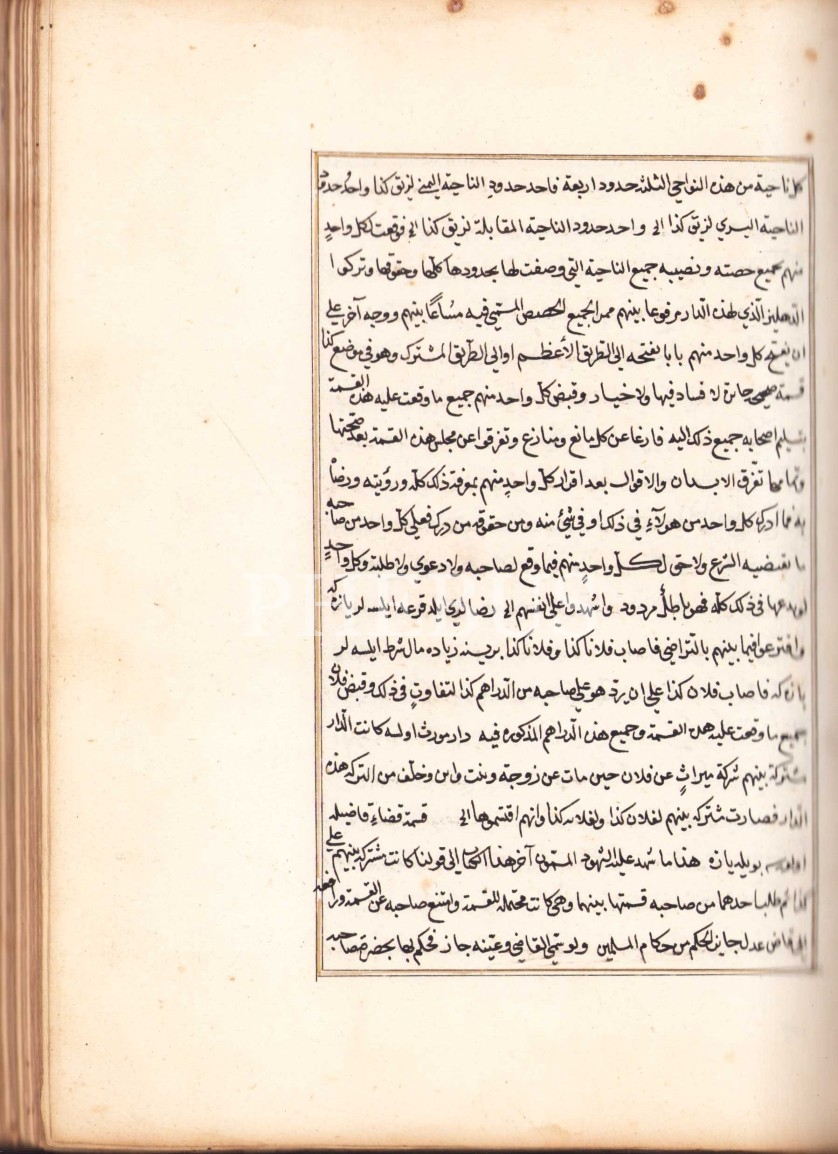 كل ناحية من هذه النواحي الثلثة حدود اربعة فاحد حدود الناحية اليمنى لزيق كذا واحد حدود
الناحية اليسري لزيق كذا الى واحد حدود الناحية المقابلة لزيق كذا الى فوقعت لكل واحدٍ
منهم جميع حصته ونصيبه جميع الناحية التي وصفت لها بحدودها كلّها وحقوقها وتركوا
الدهليز الّذي لهذه الدار مرفوعا بينهم ممر الجميع الحصص المسمّى فيه مشاعًا بينهم ووجه آخر على
ان يفتح كل واحد منهم بابا يفتحه الى الطريق الأعظم او الى الطريق المشترك وهو في موضع كذا
قسمة صحيحة جائزة لا فساد فيها ولا خيار وقبض كل واحد منهم جميع ما وقعت عليه هذه القسمة
بتسليم اصحابه جميع ذلك اليه فارغا عن كل مانع ومنازع وتفرقوا عن مجلس هذه القسمة بعد صحّتها
وتمامها تفرّق الابدان والاقوال بعد اقرار كلّ واحدٍ منهم بمعرفة ذلك كلّه ورؤيته ورضاً
به فما ادرك كل واحد من هولآء في ذلك او في شئ منه ومن حقوقه من درك فعلى كلّ واحد من صاحبه
ما يقتضيه الشرع ولا حق لكل واحدٍ منهم فيما وقع لصاحبه ولا دعوي ولا طلبة وكل واحدٍ
في ذلك كلّه فهو باطلٌ مردود واشهدوا على انفسهم الى
واقترعوا فيما بينهم بالتراضى فاصاب فلانا كذا وفلانا كذا زياده مال شرط
فاصاب فلان كذا على ان يردّ هو على صاحبه من الدراهم كذا لتفاوتٍ في ذلك وقبض فلان
جميع ما وقعت عليه هذه القسمة وجميع هذه الدراهم المذكوره فيه دار مورث كانت الدار
مشتركة بينهم شركة ميراثٍ عن فلان حين مات عن زوجة وبنت وابن وخلف من التركة هذه
الدار فصارت مشتركة بينهم لفلان كذا ولفلانه كذا وانهم اقتسموها الى قسمة قضاء
هذا ما شهد عليه الشهود المسمّون آخر هذا الكتاب الى قولنا كانت مشتركة بينهم على
كذا ثم طلب احدهما من صاحبه قسمتها بينهما وهى كانت محتملة للقسمة وامتنع صاحبه عن القسمة
الى قاض عدل جايز الحكم من حكام المسلمين ولو سمّى القاضى وعيّنه جاز فحكم بها بحضرة صاحبه